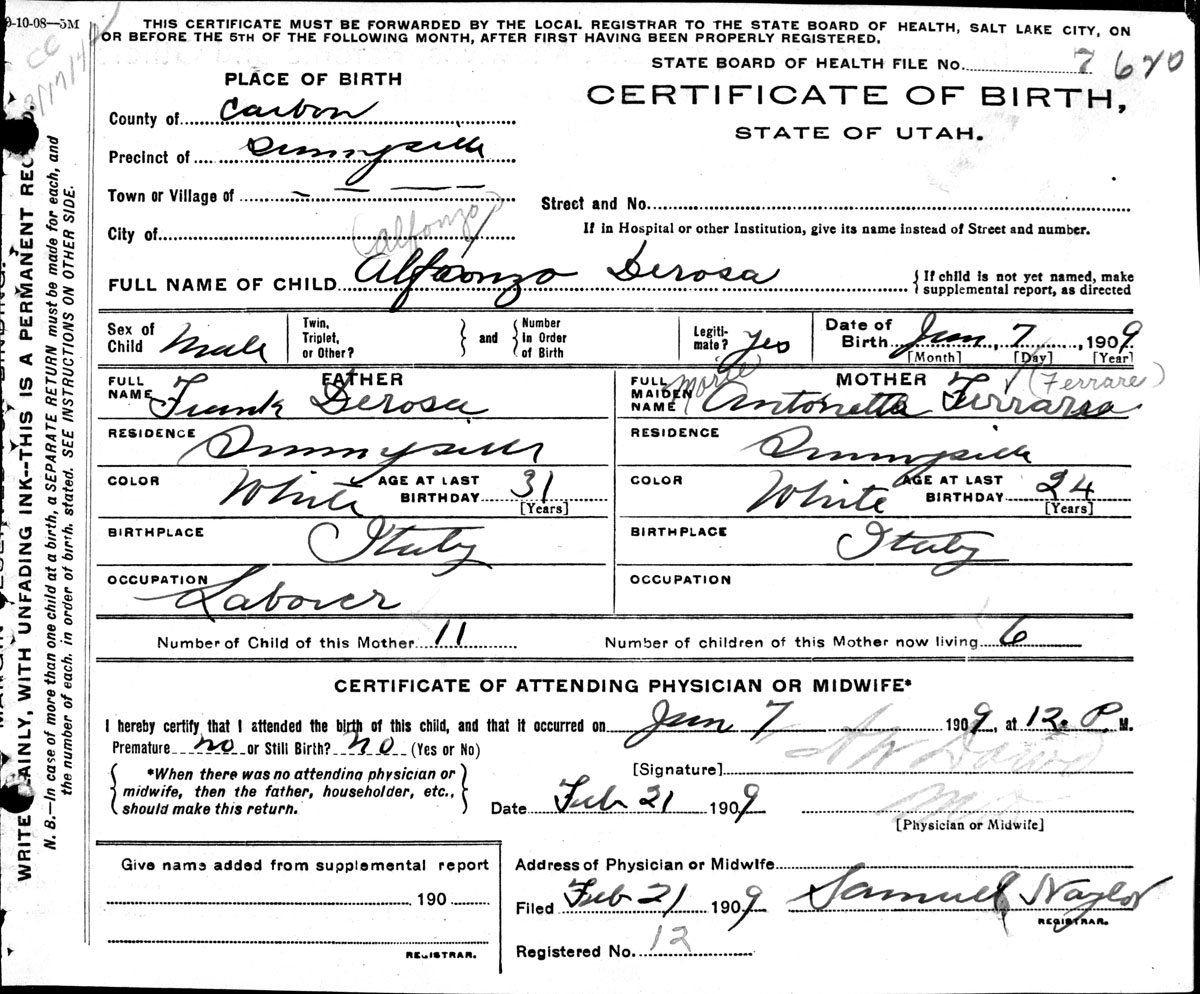 9-10-08—5M
THIS CERTIFICATE MUST BE FORWARDED BY THE LOCAL REGISTRAR TO THE STATE BOARD OF HEALTH, SALT LAKE CITY, ON
OR BEFORE THE 5TH OF THE FOLLOWING MONTH, AFTER FIRST HAVING BEEN PROPERLY REGISTERED.
STATE BOARD OF HEALTH FILE No. 7 620
PLACE OF BIRTH
CERTIFICATE OF BIRTH,
STATE OF UTAH.
County of Carbon
Precinct of Sunnyside
Town or Village of
Street and No.
City of
(Alfonzo)
If in Hospital or other Institution, give its name instead of Street and number.
FULL NAME OF CHILD Alfonzo Derosa
{If child is not yet named, make
supplemental report, as directed
Sex of Child Male
Twin, Triplet, or Other? } and { Number In Order of Birth
Legiti-mate? Yes
Date of Birth Jan, 7, 1909
[Month] [Day] [Year]
FATHER
FULL NAME Frank Derosa
MOTHER
FULL MAIDEN NAME Marie Antonetta Ferrarra (Ferrare)
RESIDENCE Sunnyside
RESIDENCE Sunnyside
COLOR White AGE AT LAST BIRTHDAY 31 [Years]
COLOR White AGE AT LAST BIRTHDAY 24 [Years]
BIRTHPLACE Italy
BIRTHPLACE Italy
OCCUPATION Laborer
OCCUPATION
Number of Child of this Mother 11
Number of children of this Mother now living 6
CERTIFICATE OF ATTENDING PHYSICIAN OR MIDWIFE*
I hereby certify that I attended the birth of this child, and that it occurred on Jan 7 1909, at 12. P M.
Premature no or Still Birth? no (Yes or No)
{ *When there was no attending physician or
midwife, then the father, householder, etc.,
should make this return. }
[Signature]
Date Feb 21 1909
[Physician or Midwife]
Give name added from supplemental report
190
REGISTRAR.
Address of Physician or Midwife
Filed Feb 21 1909 Samuel Naylor
REGISTRAR.
Registered No. 12
WRITE PLAINLY, WITH UNFADING INK--THIS IS A PERMANENT RECORD.
N. B.—In case of more than one child at a birth, a SEPARATE RETURN must be made for each, and
the number of each, in order of birth, stated. SEE INSTRUCTIONS ON OTHER SIDE.